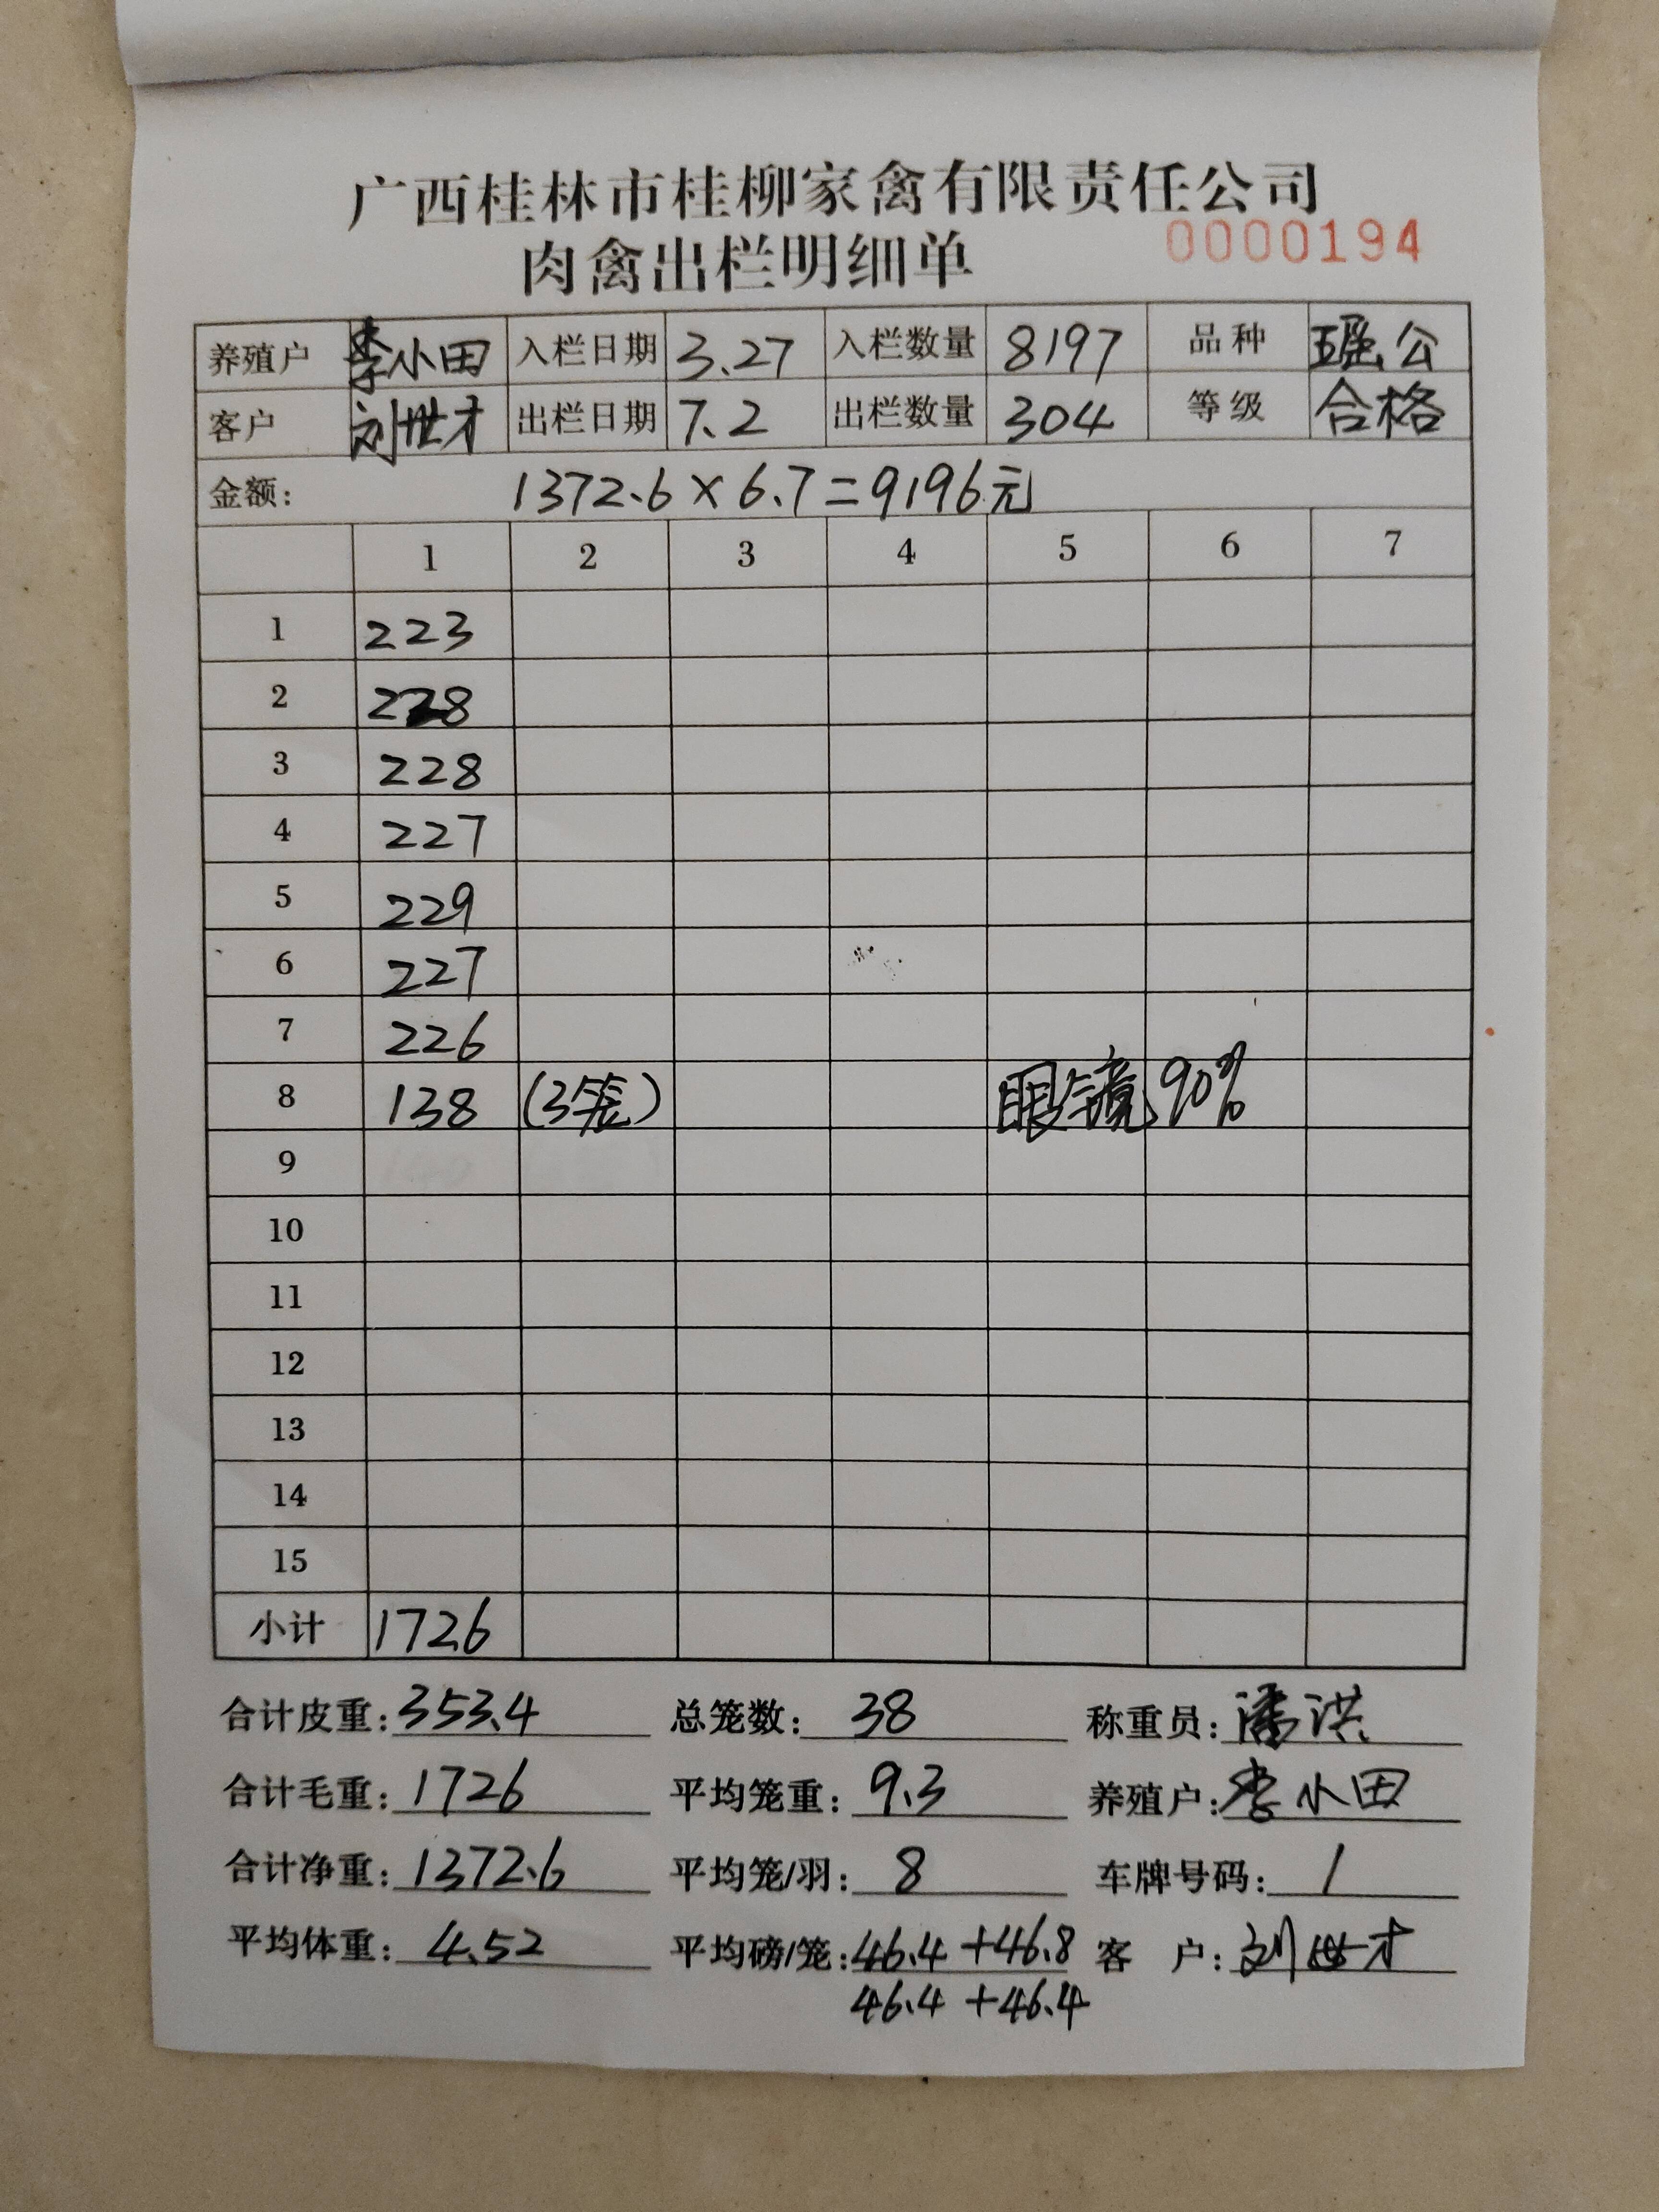 广西桂林市桂柳家禽有限责任公司
肉禽出栏明细单 0000194
养殖户 李小田 入栏日期 3.27 入栏数量 8197 品种 瑶公
客户 刘世才 出栏日期 7.2 出栏数量 304 等级 合格
金额: 1372.6×6.7=9196元
1 2 3 4 5 6 7
1 223
2 228
3 228
4 227
5 229
6 227
7 226
8 138 (3笼) 眼镜90%
9
10
11
12
13
14
15
小计 1726
合计皮重: 353.4 总笼数: 38 称重员: 潘洪
合计毛重: 1726 平均笼重: 9.3 养殖户: 李小田
合计净重: 1372.6 平均笼/羽: 8 车牌号码: 1
平均体重: 4.52 平均磅/笼: 46.4+46.8 客 户: 刘世才
46.4+46.4